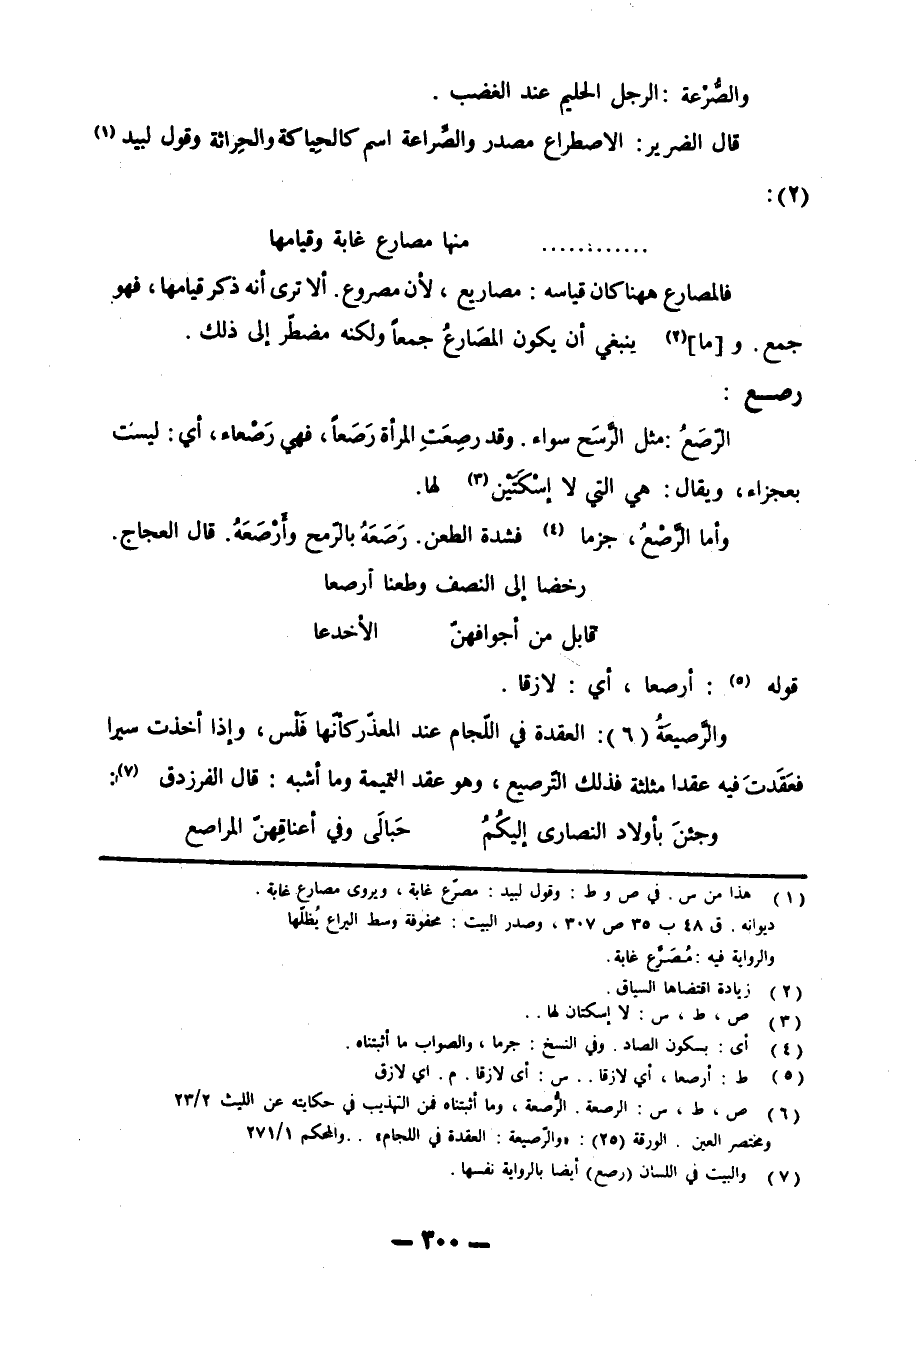 والصُّرْعة : الرجل الحليم عند الغضب .
قال الضرير : الاصطراع مصدر والصُّراعة اسم كالحِياكة والحِراثة وقول لبيد (١)
(٢) :
............ منها مصارع غابة وقيامها
فالمصارع ههنا كان قياسه : مصاريع ، لأن مصروع . ألا ترى أنه ذكر قيامها ، فهو
جمع . و [ما](٢) ينبغي أن يكون المصَارعُ جمعاً ولكنه مضطّر إلى ذلك .
رصــع :
الرّصَعُ : مثل الرَّسَح سواء . وقد رصِعَتِ المرأة رَصَعاً ، فهي رَصْعاء ، أي : ليست
بعجزاء ، ويقال : هي التي لا إسْكَتَيْن (٣) لها .
وأما الرَّصْعُ ، جزما (٤) فشدة الطعن . رَصَعَهُ بالرّمح وأَرْصَعَهُ . قال العجاج .
رخضا إلى النصف وطعنا أرصعا
قابل من أجوافهنّ الأخدعا
قوله (٥) : أرصعا ، أي : لازقا .
والرَّصيعَةُ (٦) : العقدة في اللّجام عند المعذّر كأنّها فَلْس ، وإذا أخذت سيرا
فعَقَدتَ فيه عقدا مثلثة فذلك التّرصيع ، وهو عقد التميمة وما أشبه : قال الفرزدق (٧) :
وجئنَ بأولاد النصارى إليكُمُ حَبالَى وفي أعناقِهنّ المراصع
(١) هذا من س . في ص و ط : وقول لبيد : مصرّع غابة ، ويروى مصارع غابة .
ديوانه . ق ٤٨ ب ٣٥ ص ٣٠٧ ، وصدر البيت : محفوفة وسط اليراع يُظلّها
والرواية فيه : مُصَرَّع غابة .
(٢) زيادة اقتضاها السياق .
(٣) ص ، ط ، س : لا إسكتان لها . .
(٤) أى : بسكون الصاد . وفي النسخ : جرما ، والصواب ما أثبتناه .
(٥) ط : أرصعا ، أي لازقا . . س : أى لازقا . م . اي لازق
(٦) ص ، ط ، س : الرصعة . الرُّصعة ، وما أثبتناه فمن التهذيب في حكايته عن الليث ٢/٢٣
ومختصر العين . الورقة (٢٥) : «والرّصيعة : العقدة في اللجام» . . والمحكم ١/٢٧١
(٧) والبيت في اللسان (رصع) أيضا بالرواية نفسها .
— ٣٠٠ —